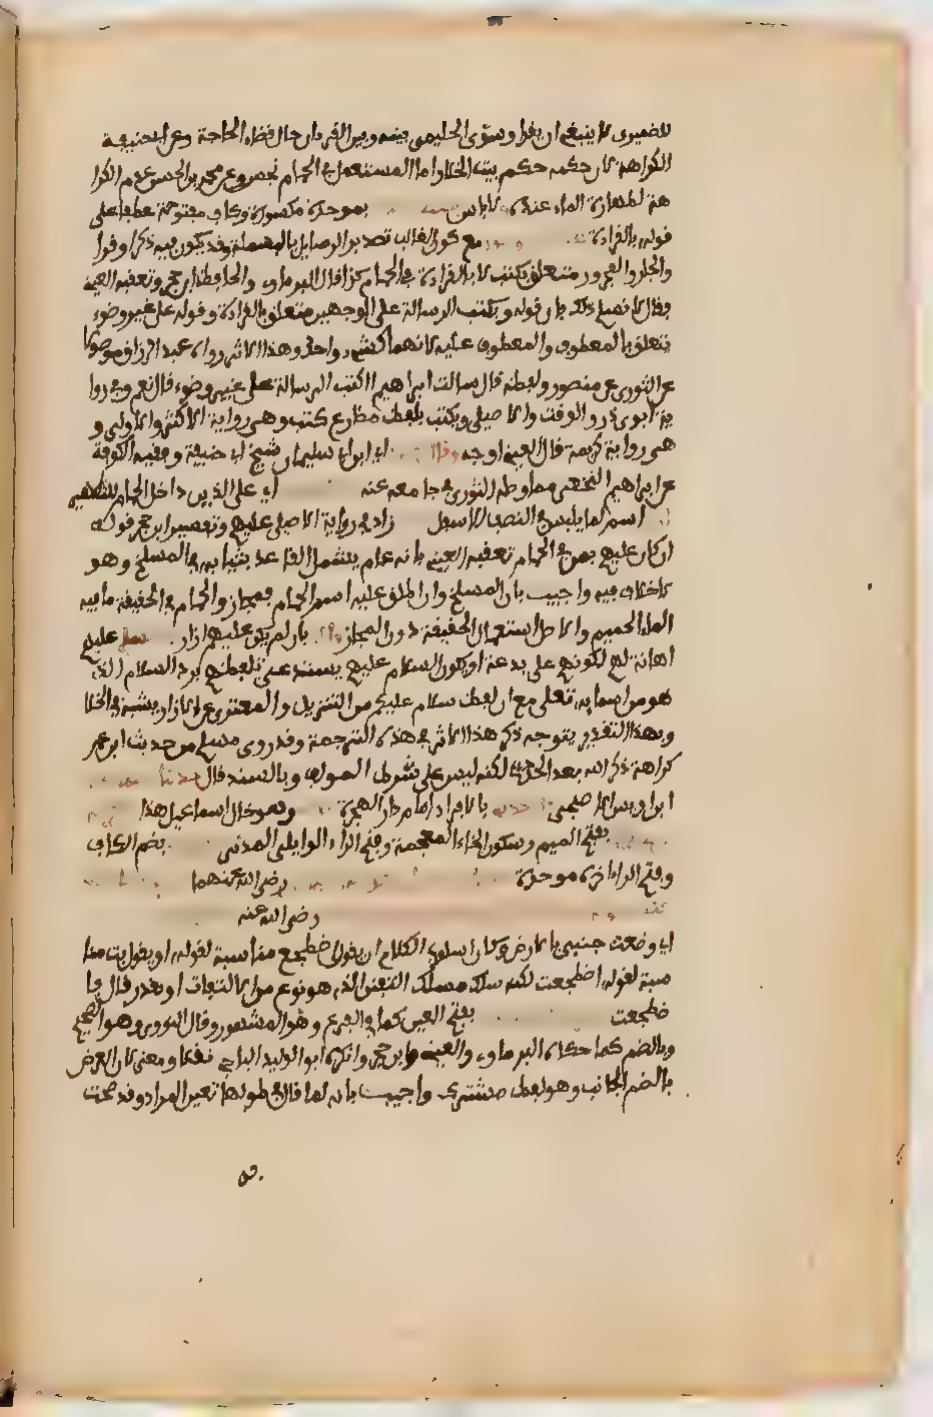 للضميرى لا ينبغي ان يقرا وسوّى الحليمي بينه وبين القرءان حال قضاء الحاجة وعن ابى حنيفة
الكراهة لان حكمه حكم بيت الخلا والماء المستعمل في الحمام نجس وعن محمد بن الحسن عدم الكرا
هة لطهارة الماء عنده لا باس بموحدة مكسورة وكاف مفتوحة عطفا على
قوله بالقراءة مع كون الغالب تصدير الرسايل بالبسملة وقد يكون فيه ذكر او قرا
والجار والمجرور متعلق بكتب لا بالقراءة في الحمام كذا قال البرماوي والحافظ ابن حجر وتعقبه العيني
فقال لا نسلم ذلك بان قوله ويكتب الرسالة على الوجهين متعلق بالقراءة وقوله على غير وضوء
يتعلق بالمعطوف والمعطوف عليه لانهما كشيء واحد وهذا الاثر رواه عبد الرزاق موصولا
عن الثوري عن منصور ولفظه قال سالت ابراهيم ااكتب الرسالة على غير وضوء قال نعم وفي روا
ية ابوي ذر والوقت والاصيلي ويكتب بلفظ مضارع كتب وهي رواية الاكثر والاولى و
هي رواية كريمة قال العيني اوجه وقال اي ابن ابي سليمان شيخ ابي حنيفة وفقيه الكوفة
عن ابراهيم النخعي مما وصله الثوري في جامعه عنه اي على الذين داخل الحمام للتطهير
اسم لما يلبس في النصف الاسفل زاد في رواية الاصيلي عليهم وتفسير ابن حجر قوله
ان كان عليهم بمن في الحمام تعقبه العيني بانه عام يشمل القاعد بثيابه في المسلخ وهو
لا خلاف فيه واجيب بان المسلخ وان اطلق عليه اسم الحمام فمجاز والحمام في الحقيقة ما فيه
الماء الحميم والاصل استعمال الحقيقة دون المجاز بان لم يكن عليهم ازار عليهم
اهانة لهم لكونهم على بدعة او لكون السلام عليهم يستدعي تلفظهم برد السلام الذي
هو من اسمايه تعلى مع ان لفظ سلام عليكم من التنزيل والمتعري عن الازار يشبه في الخلا
وبهذا التقدير يتوجه ذكر هذا الاثر في هذه الترجمة وقد روى مسلم من حديث ابن عمر
كراهة ذكر الله بعد الحدث لكنه ليس على شرط المولف وبالسند قال حدثنا
ابن اويس الاصبحي بالافراد امام دار الهجرة وهو خال اسماعيل هذا
بفتح الميم وسكون الخاء المعجمة وفتح الراء الوايلي المدني بضم الكاف
وفتح الراء اخره موحدة رضي الله عنهما
رضي الله عنه
اي وضعت جنبي بالارض وكان اسلوب الكلام ان يقول اضطجع مناسبة لقوله او يقول بت منا
سبة لقوله اضطجعت لكنه سلك مسلك التفنن الذي هو نوع من الالتفات او يقدر قال فا
ضطجعت بفتح العين كما في الفرع وهو المشهور وقال النووي وهو الصحيح
وبالضم كما حكاه البرماوي والعيني وابن حجر وانكره ابو الوليد الباجي نقلا ومعنى لان العرض
بالضم الجانب وهو لفظ مشترك واجيب بانه لما قال في طولها تعين المراد وقد صحت